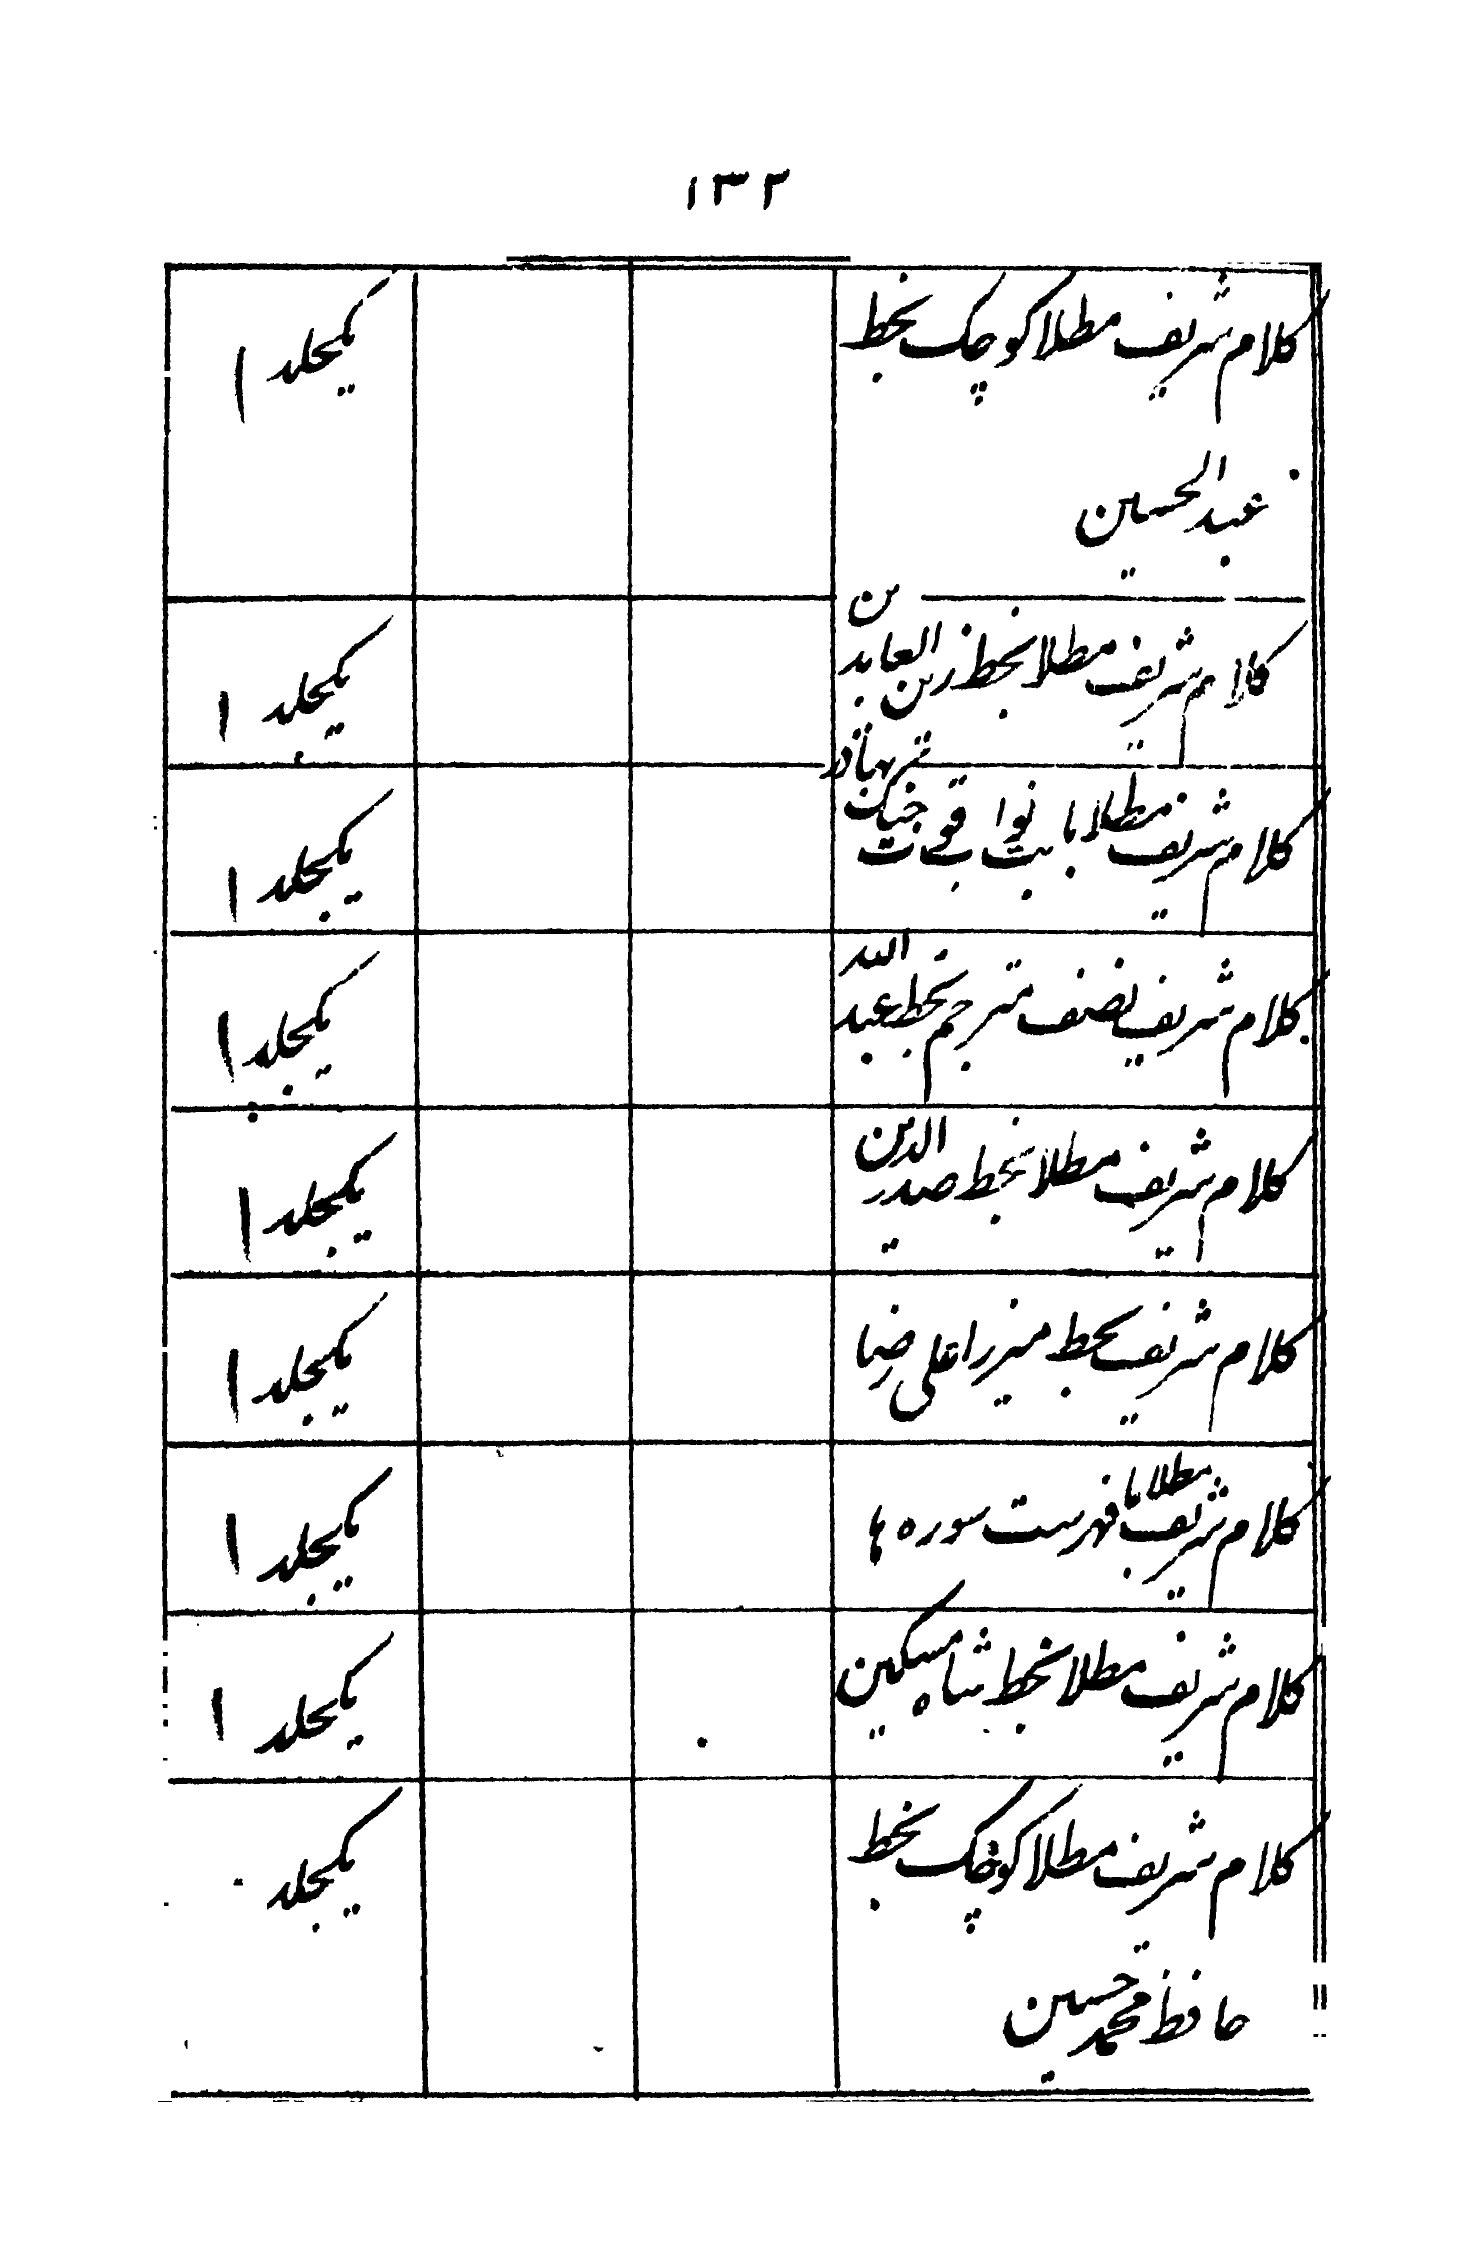 ۱۳۲
کلام شریف مطلا کوچک بخط یکجلد ۱
عبدالحسین
کلام شریف مطلا بخط زین العابدین یکجلد ۱
کلام شریف مطلا بابت نواب قوت جنگ بهادر یکجلد ۱
کلام شریف نصف مترجم بخط عبد الله یکجلد ۱
کلام شریف مطلا بخط صدر الدین یکجلد ۱
کلام شریف بخط میرزا علی رضا یکجلد ۱
کلام شریف مطلا با فهرست سوره ها یکجلد ۱
کلام شریف مطلا بخط شاه مسکین یکجلد ۱
کلام شریف مطلا کوچک بخط یکجلد
حافظ محمد حسین